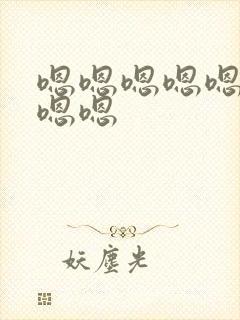 嗯嗯嗯嗯嗯
嗯嗯
妖尘光